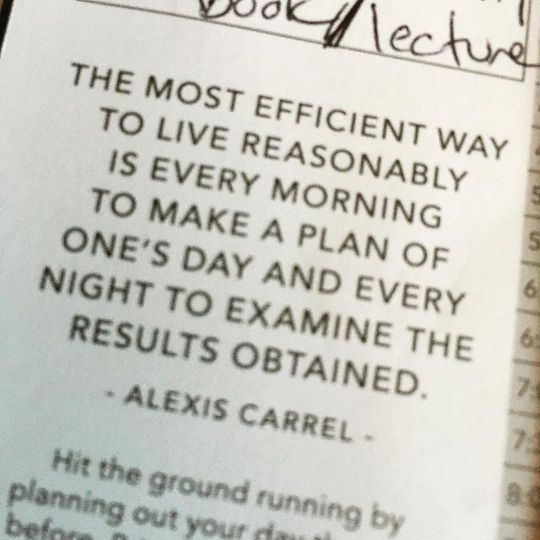 book/lecture
THE MOST EFFICIENT WAY
TO LIVE REASONABLY
IS EVERY MORNING
TO MAKE A PLAN OF
ONE'S DAY AND EVERY
NIGHT TO EXAMINE THE
RESULTS OBTAINED.
- ALEXIS CARREL -
Hit the ground running by
planning out your day
before.
5
5
6
6
7
7
8:0